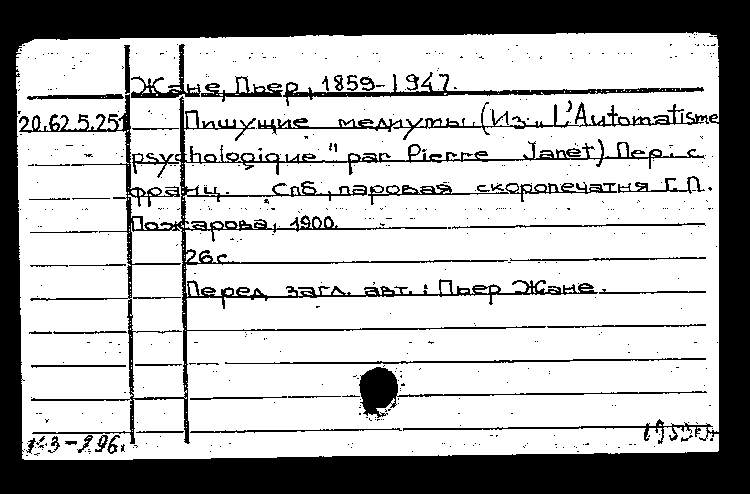 Жане, Пьер, 1859-1947.
20.62.5.251 Пишущие медиумы. (Из „L'Automatisme
psychologique" par Pierre Janet) Пер. с
франц. Спб, паровая скоропечатня Г. П.
Пожарова, 1900.
26с.
Перед загл. авт.: Пьер Жане.